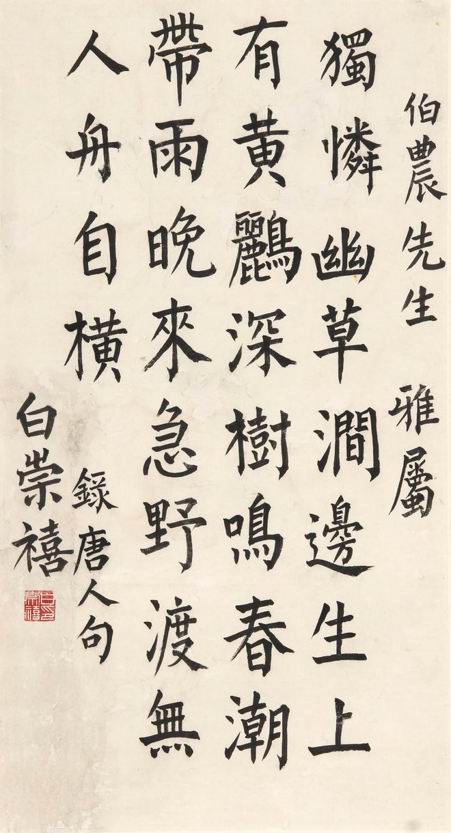 伯農先生 雅屬
獨憐幽草澗邊生上
有黃鸝深樹鳴春潮
帶雨晚來急野渡無
人舟自橫
錄唐人句
白崇禧